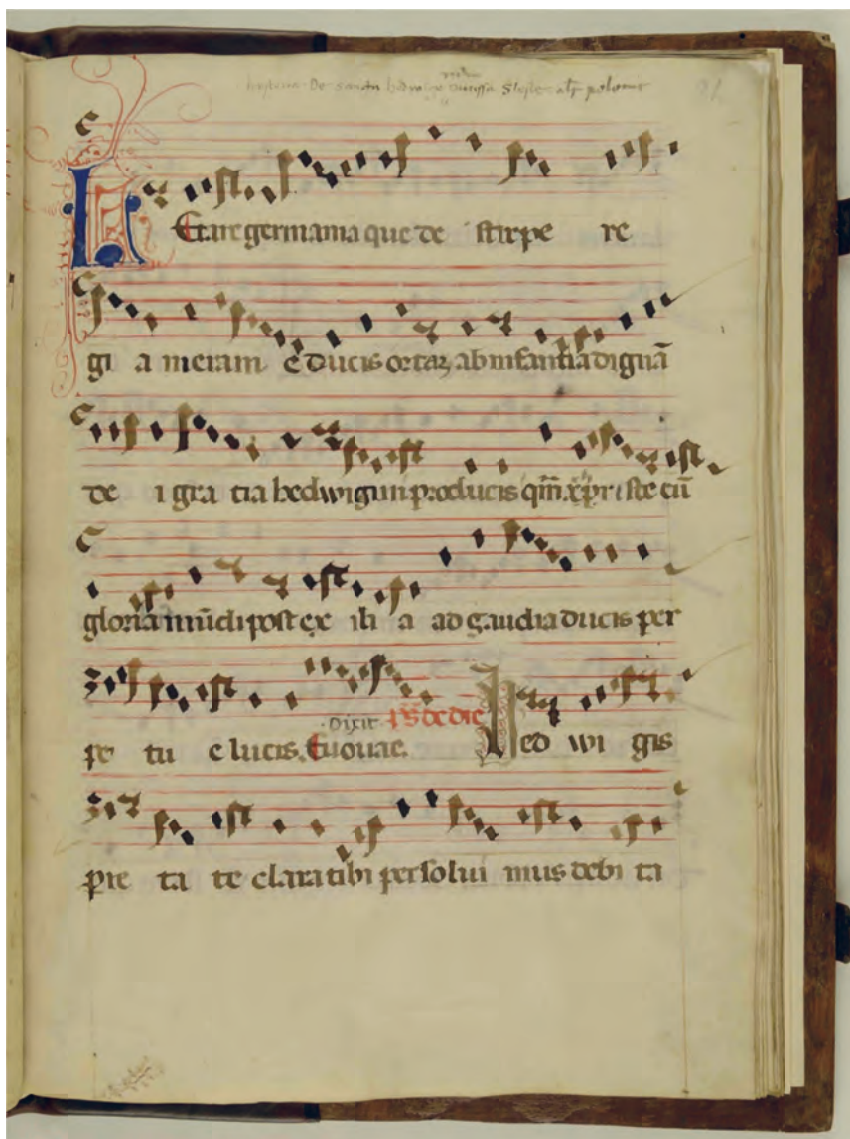 historia De sancta hedwige ducissa Slesie
LEtare germania que de stirpe re
gi a meram e ducis ortaʒ ab infantia dignā
de i gra tia hedwigim producis qm̄ xp̄c iste cū
gloria mūdi post ex ili a ad gaudia ducis per
pe tu e lucis. Euouae. Dixit ps de die Hed wi gis
pie ta te clara tibi persolui mus debi ta